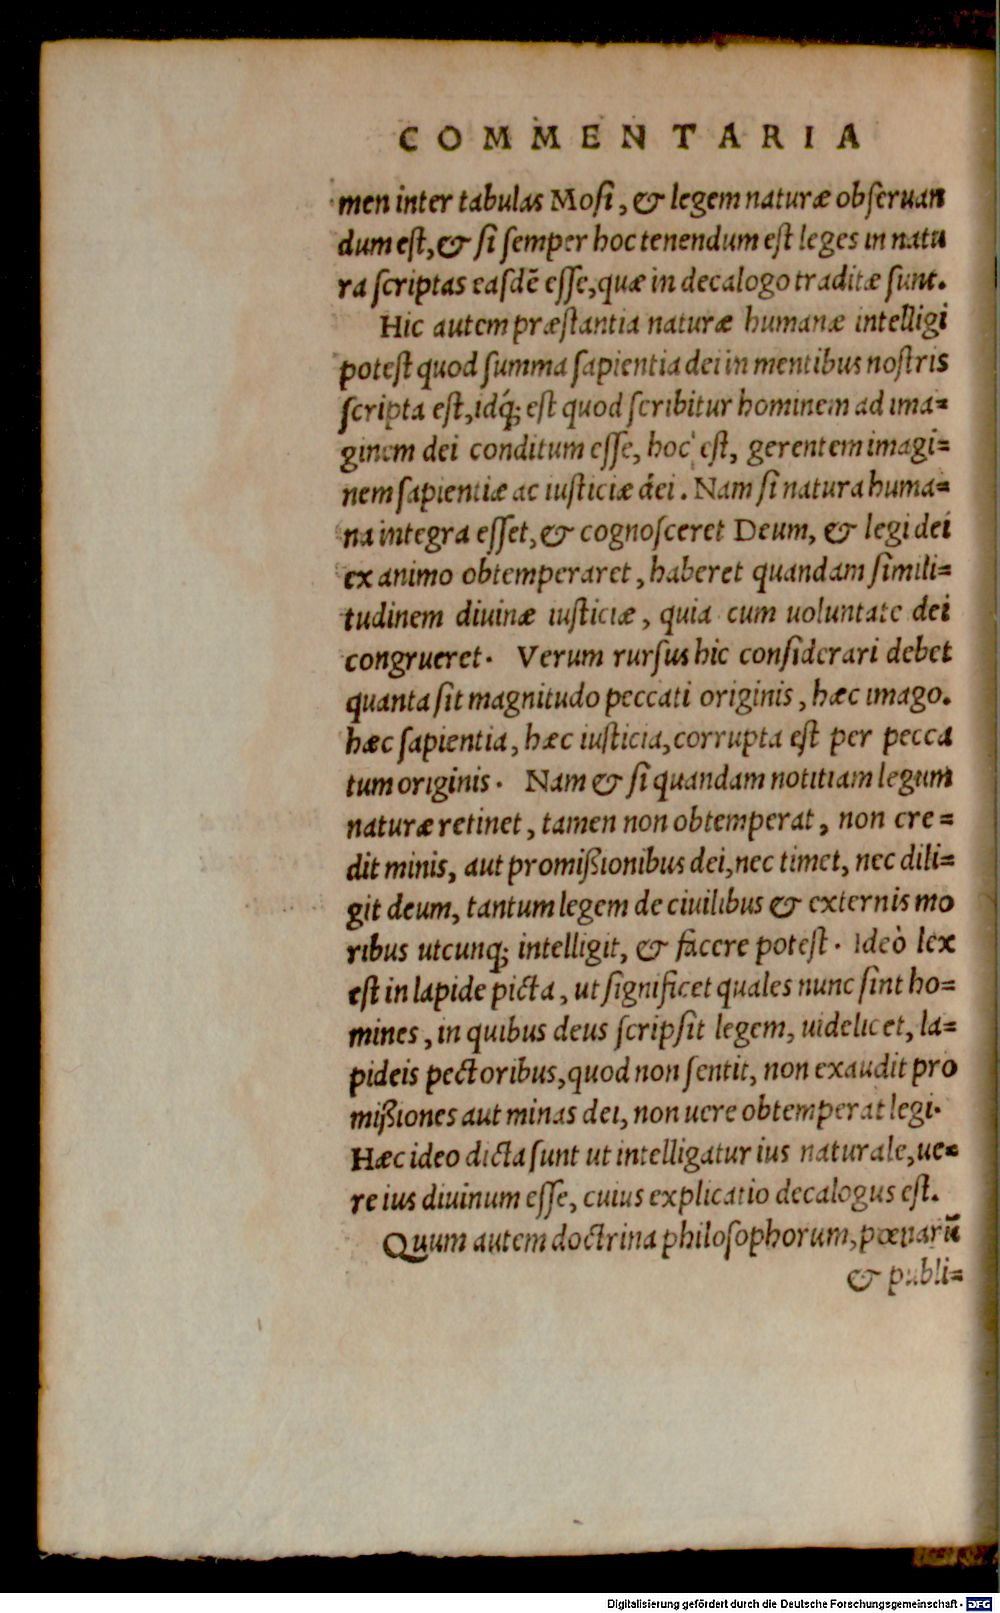 COMMENTARIA
men inter tabulas Mosi, & legem naturæ obseruan
dum est, & si semper hoc tenendum est leges in natu
ra scriptas easdẽ esse, quæ in decalogo traditæ sunt.
Hic autem præstantia naturæ humanæ intelligi
potest quod summa sapientia dei in mentibus nostris
scripta est, idq́; est quod scribitur hominem ad ima=
ginem dei conditum esse, hoc est, gerentem imagi=
nem sapientiæ ac iusticiæ dei. Nam si natura huma=
na integra esset, & cognosceret Deum, & legi dei
ex animo obtemperaret, haberet quandam simili=
tudinem diuinæ iusticiæ, quia cum uoluntate dei
congrueret. Verum rursus hic considerari debet
quanta sit magnitudo peccati originis, hæc imago.
hæc sapientia, hæc iusticia, corrupta est per pecca
tum originis. Nam & si quandam notitiam legum
naturæ retinet, tamen non obtemperat, non cre=
dit minis, aut promißionibus dei, nec timet, nec dili=
git deum, tantum legem de ciuilibus & externis mo
ribus utcunq; intelligit, & facere potest. Ideò lex
est in lapide picta, ut significet quales nunc sint ho=
mines, in quibus deus scripsit legem, uidelicet, la=
pideis pectoribus, quod non sentit, non exaudit pro
mißiones aut minas dei, non uere obtemperat legi.
Hæc ideo dicta sunt ut intelligatur ius naturale, ue=
re ius diuinum esse, cuius explicatio decalogus est.
Quum autem doctrina philosophorum, pœnarũ
& publi=
Digitalisierung gefördert durch die Deutsche Forschungsgemeinschaft - DFG